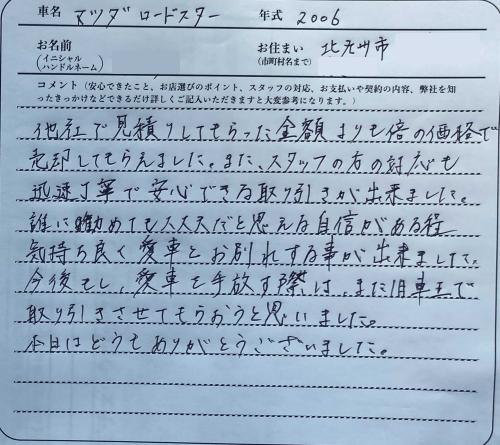 車名 マツダロードスター 年式 2006
お名前
(イニシャル
ハンドルネーム)
お住まい 北九州市
(市町村名まで)
コメント(安心できたこと、お店選びのポイント、スタッフの対応、お支払いや契約の内容、弊社を知
ったきっかけなどできるだけ詳しくご記入いただきますと大変参考になります。)
他社で見積りしてもらった金額よりも倍の価格で
売却してもらえました。また、スタッフの方の対応も
迅速丁寧で安心できる取り引きが出来ました。
誰に勧めても大丈夫だと思える自信がある程
気持ち良く愛車とお別れする事が出来ました。
今後もし、愛車を手放す際は、また旧車王で
取り引きさせてもらおうと思いました。
本日はどうもありがとうございました。